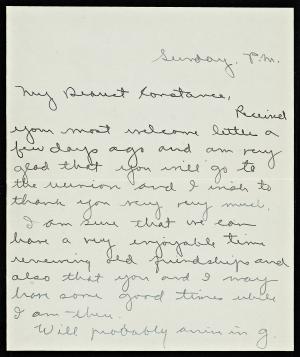 Sunday, P.M.
My Dearest Constance,
Received
your most welcome letter a
few days ago and am very
glad that you will go to
the reunion and I wish to
thank you very very much.
I am sure that we can
have a very enjoyable time
renewing old friendships and
also that you and I may
have some good times while
I am there.
Will probably arrive in G.